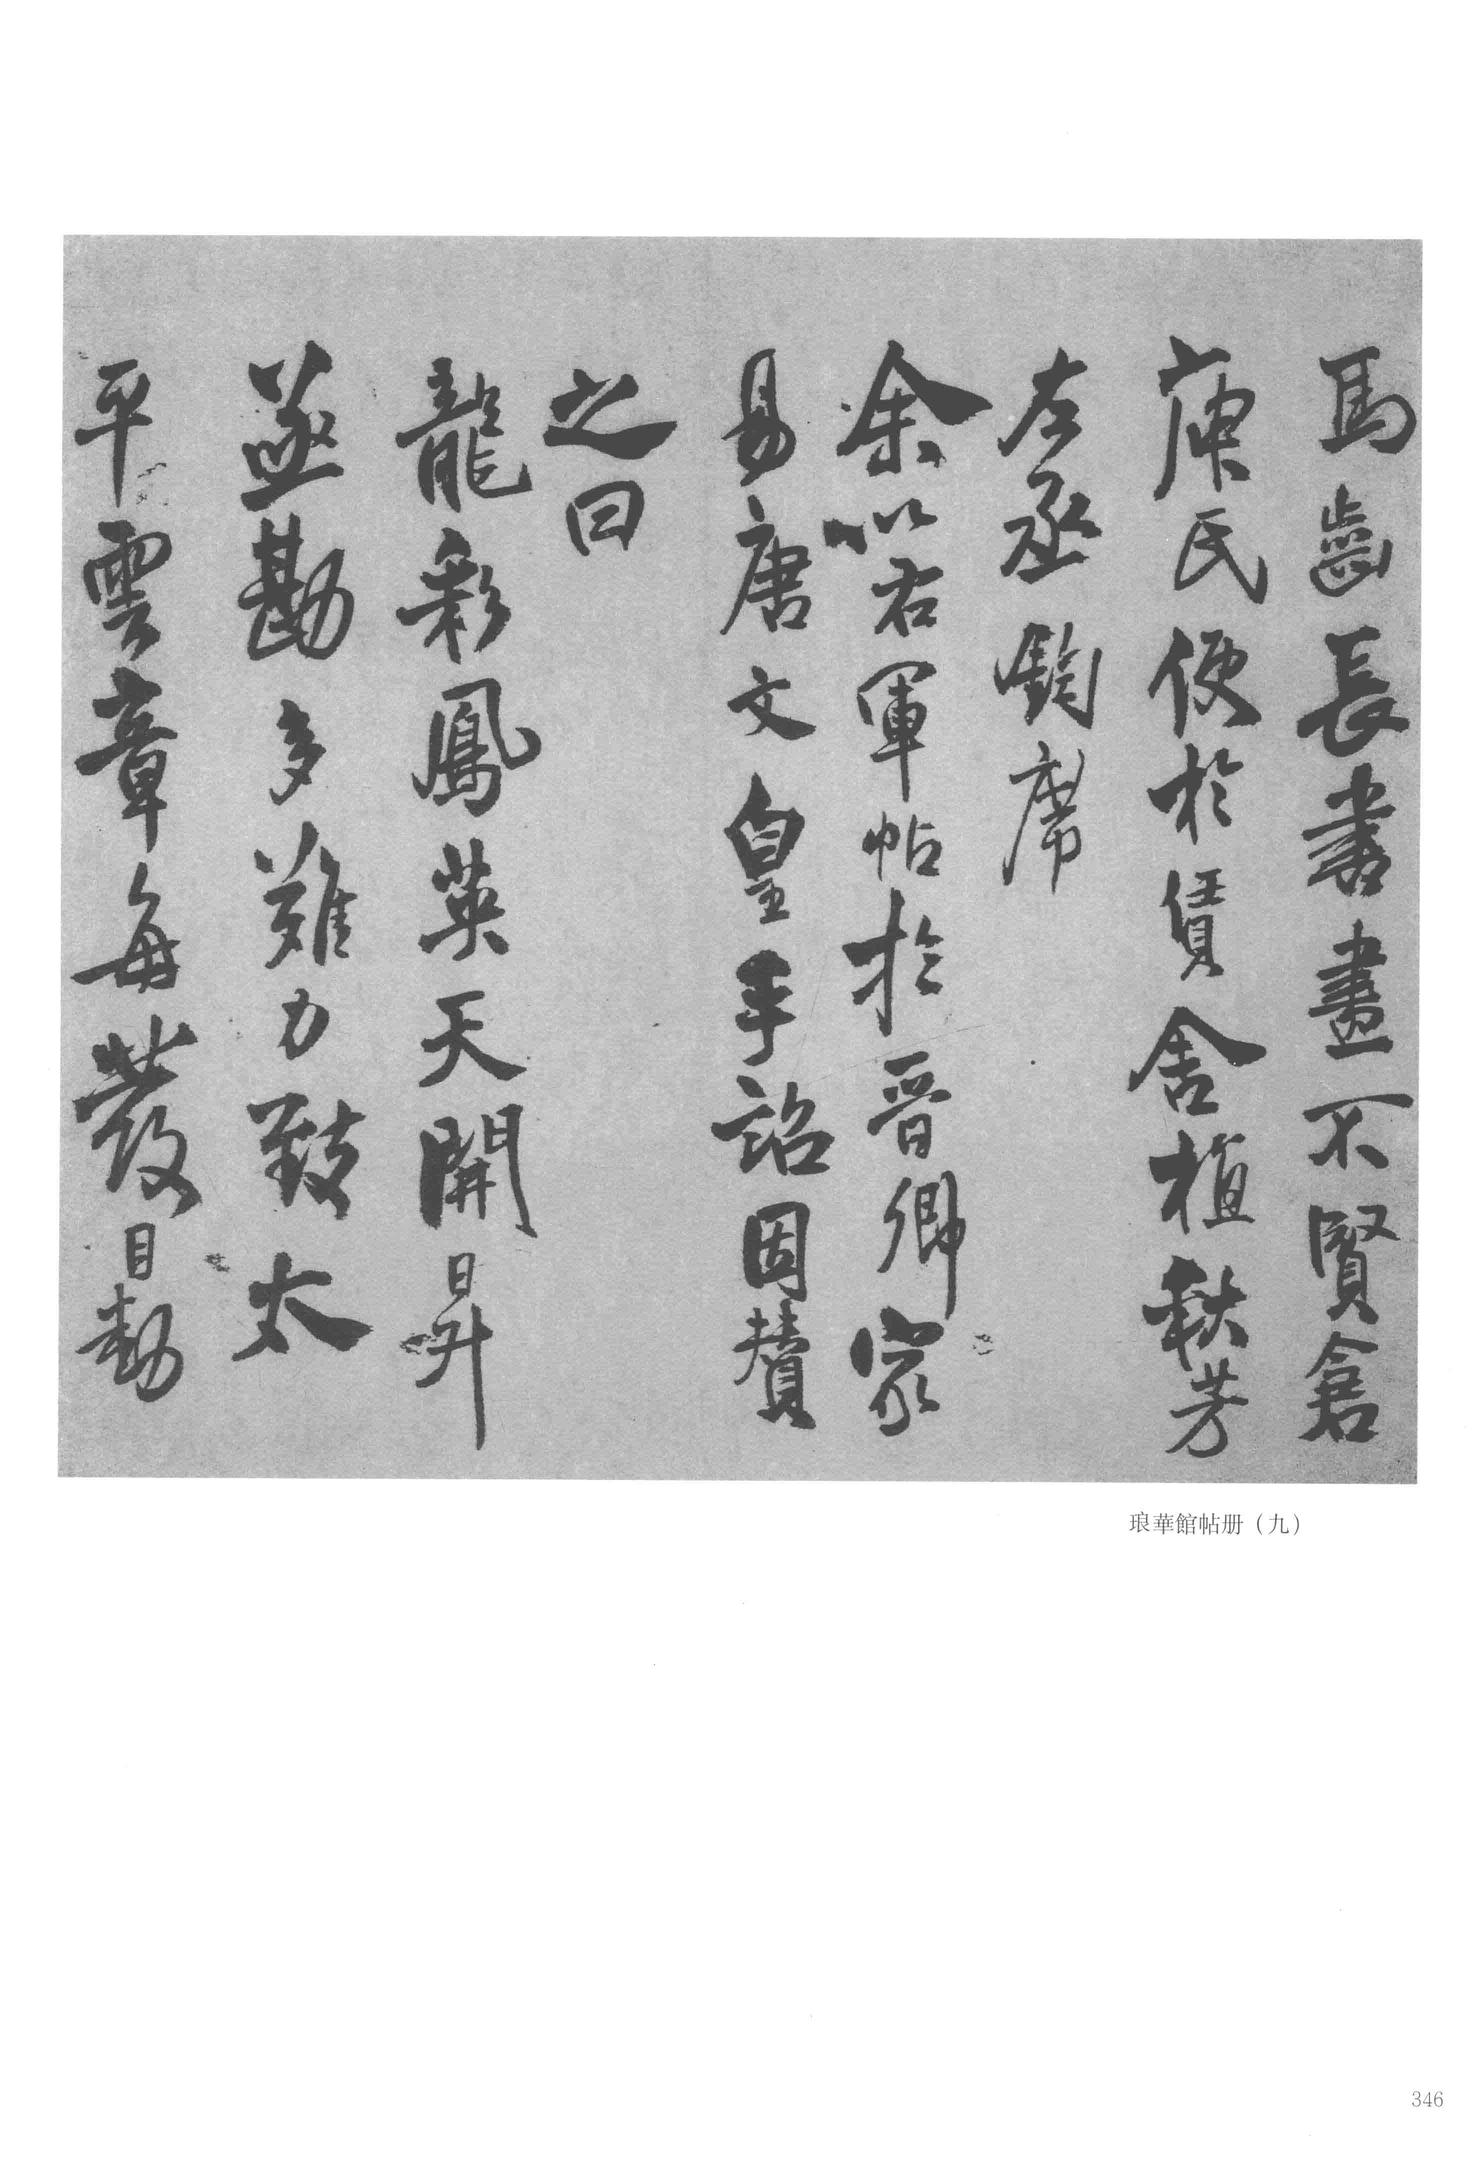 馬齒長書畫不賢倉
庾氏便於賃舍植秫芳
左丞鈞席
余以右軍帖於晉卿家
易唐文皇手詔因贊
之曰
龍彩鳳英天開日昇
亟戡多難力致太
平雲章每發目動
琅華館帖册（九）
346